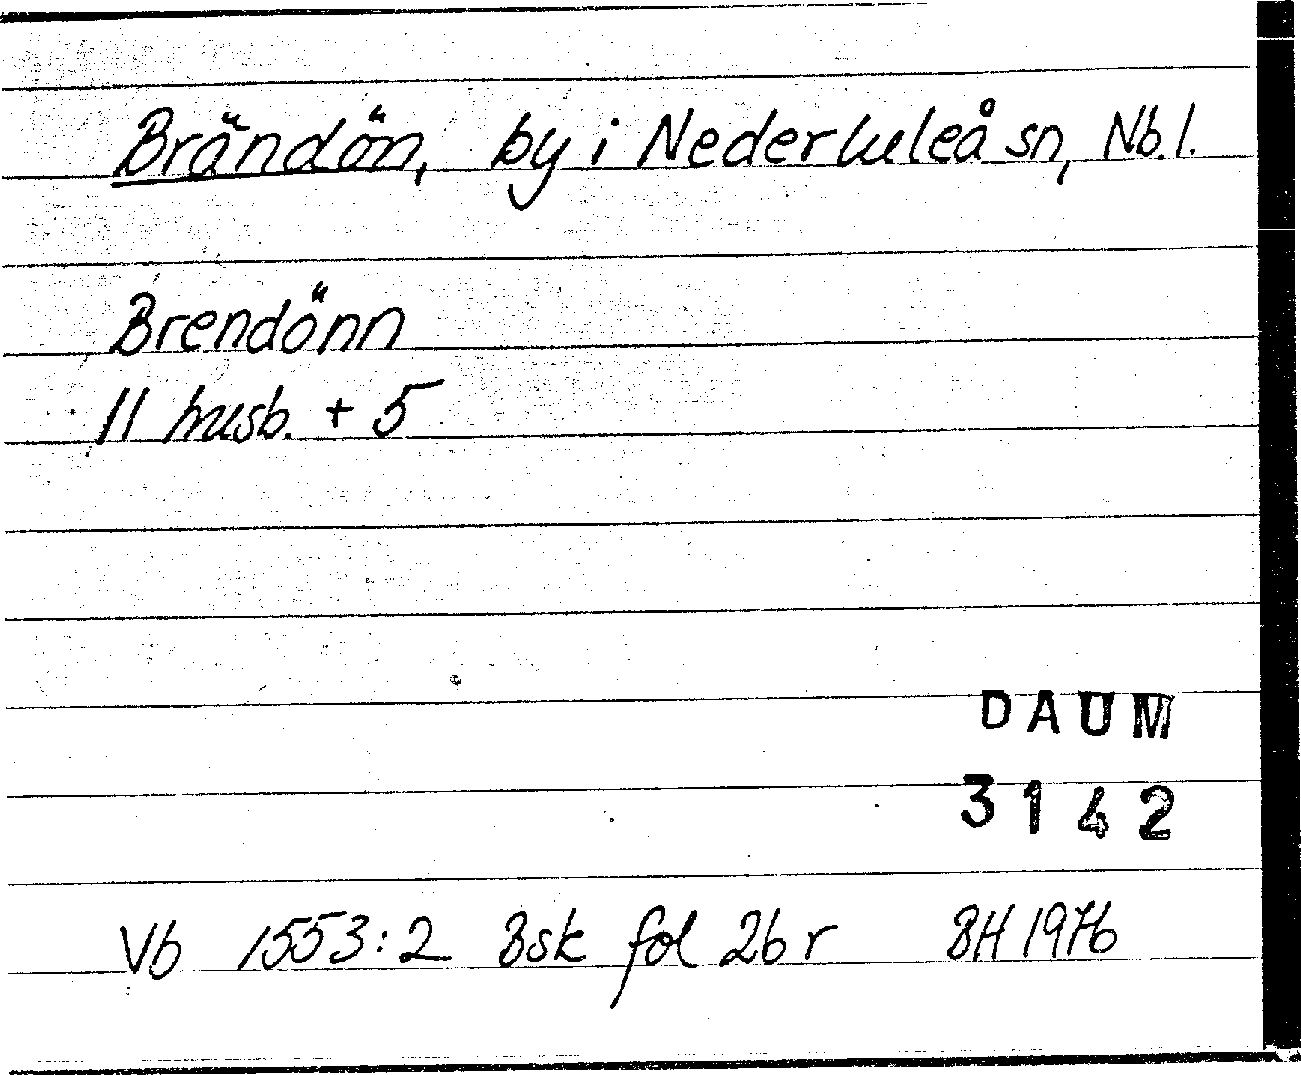 Brändön, by i Nederluleå sn, Nb.l.
Brendönn
11 husb. + 5
DAUM
3142
Vb 1553:2 Bsk fol 26 r BH 1976